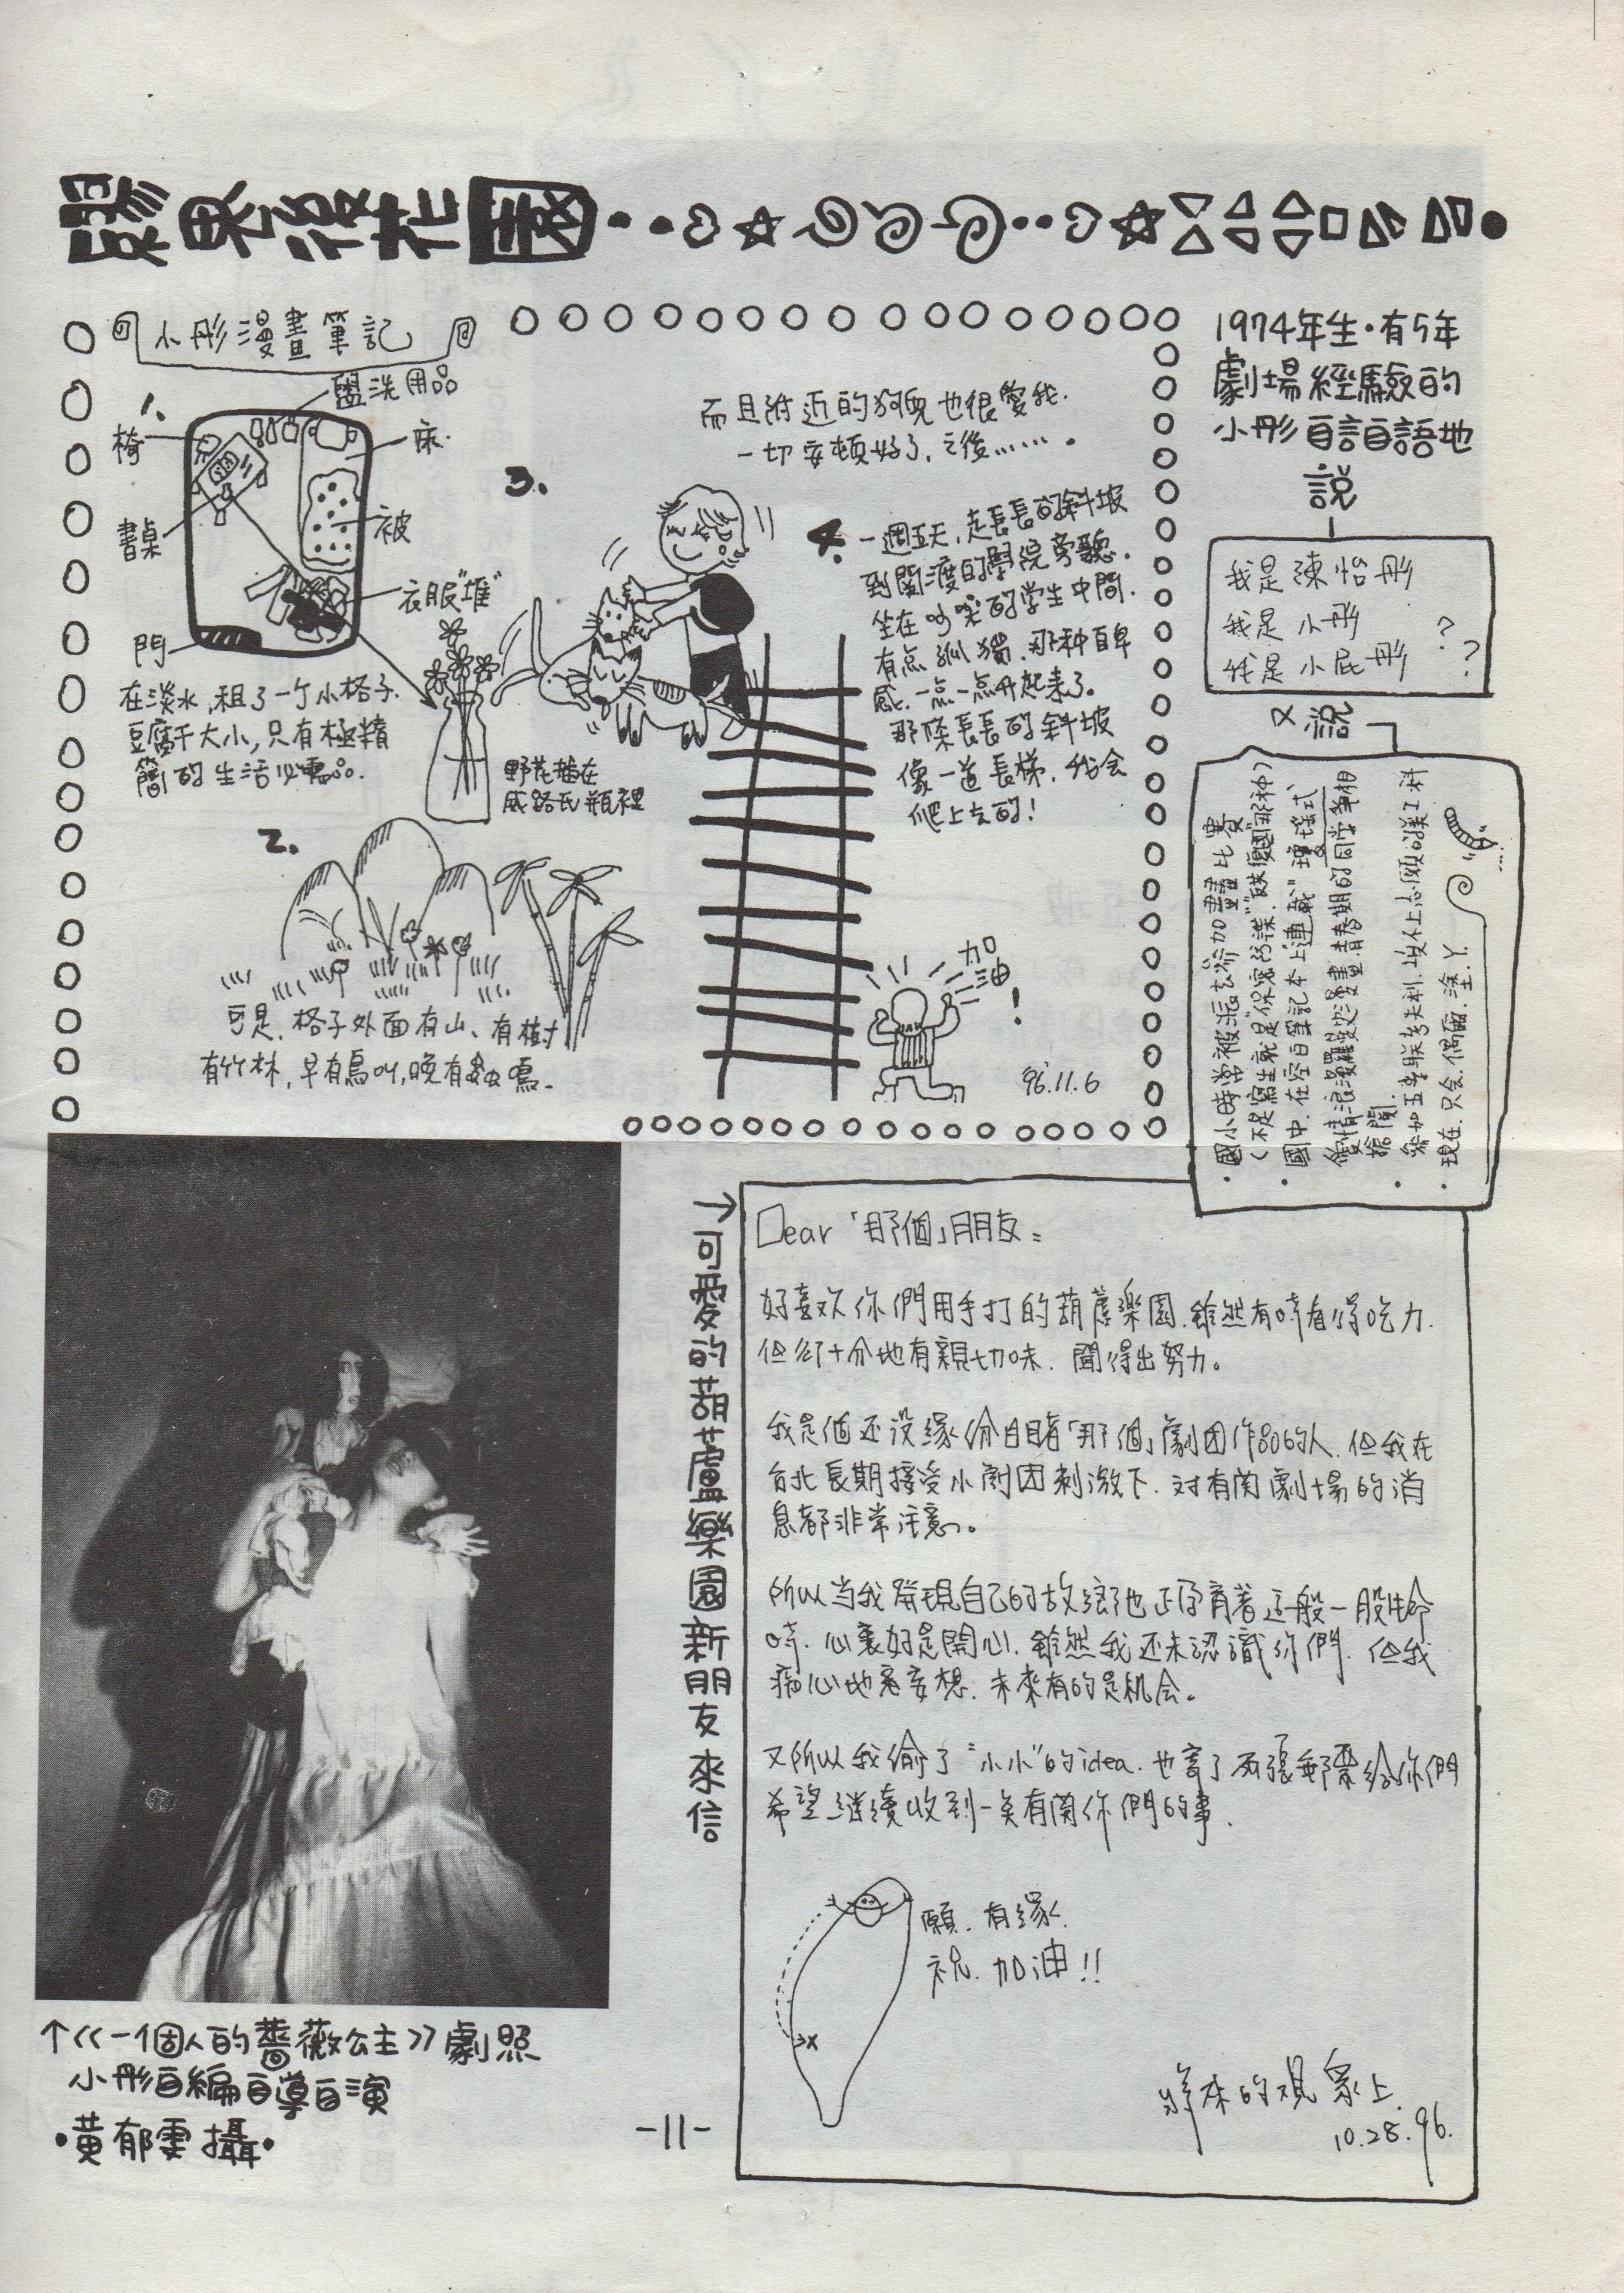 小彤漫畫筆記
1.
盥洗用品
椅
床
書桌
被
衣服"堆"
門
在淡水,租了一个小格子.
豆腐干大小,只有極精
簡的生活必需品.
野花插在
威路氏瓶裡
2.
可是.格子外面有山、有樹
有竹林,早有鳥叫,晚有蟲鳴.
3.
而且附近的狗兒也很愛我.
一切安頓好了.之後......
4.
一週五天,走長長的斜坡
到關渡的學院旁聽.
坐在吵鬧的学生中間.
有点孤獨.那种自卑
感.一点一点升起來了。
那條長長的斜坡
像一道長梯,我会
爬上去的!
加油!
96.11.6
1974年生·有5年
劇場經驗的
小彤自言自語地
説
我是陳怡彤
我是小彤
我是小屁彤
??
又說
·國小時常被派去參加畫畫比賽
(不是寫生就是"保密防諜"
·國中.在空白筆記本上連載"瓊瑤式
愛情浪漫漫畫.青春期的同學爭相
搶閱.
·現在.只会.偶爾.塗.丫.
→可愛的葫蘆樂園新朋友來信
Dear「那個」朋友:
好喜欢你們用手打的葫蘆樂園.雖然有時看得吃力.
但須十分地有親切味.聞得出努力。
我是個还没緣份目睹「那個」劇团作品的人.但我在
台北長期接受小劇团刺激下.对有関劇場的消
息都非常注意。
所以当我發現自己的故鄉也正孕育著這般一股生命
時.心裏好是開心.雖然我还未認識你們.但我
痴心地妄想.未來有的是机会。
又所以我偷了"小小"的idea.也寄了兩張郵票給你們
希望継續收到一些有関你們的事.
願.有緣.
祝.加油!!
將來的観眾上.
10.28.96.
↑<<一個人的薔薇公主>>劇照
小彤自編自導自演
·黃郁雯攝·
-11-